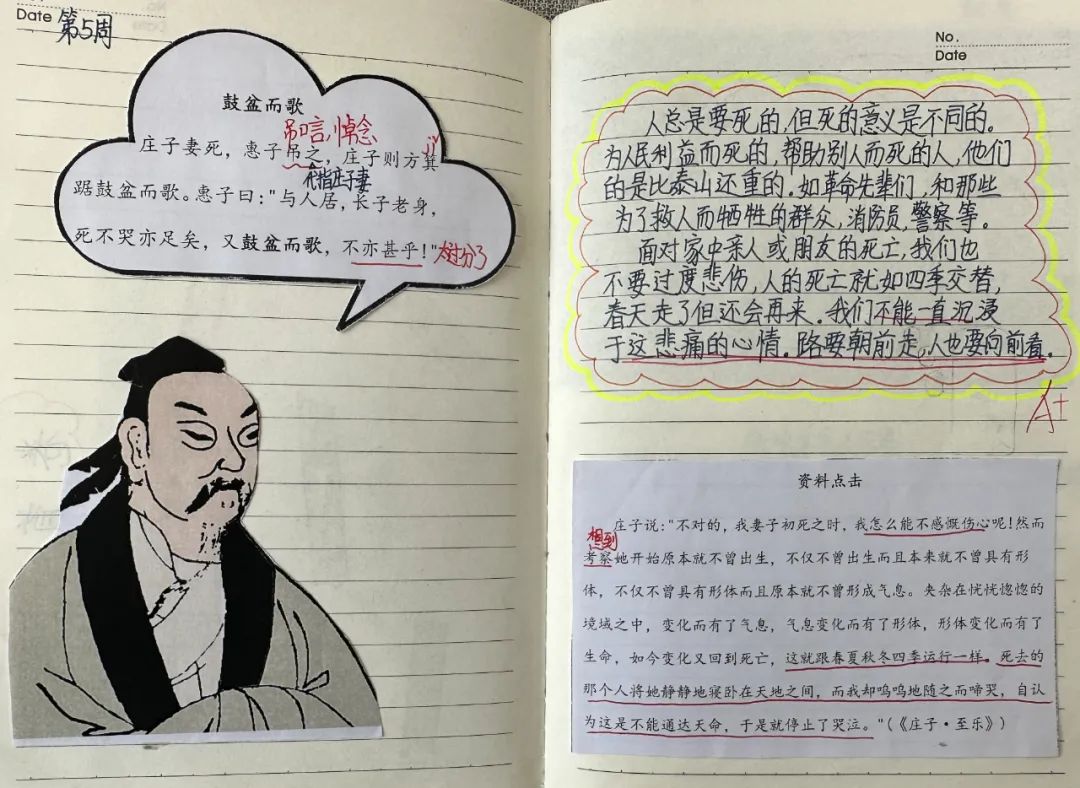 Date 第5周
鼓盆而歌
吊唁,悼念
庄子妻死，惠子吊之，庄子则方箕
代指庄子妻
踞鼓盆而歌。惠子曰："与人居，长子老身，
死不哭亦足矣，又鼓盆而歌，不亦甚乎！"太过分了
No.
Date
人总是要死的，但死的意义是不同的。
为人民利益而死的，帮助别人而死的人，他们
的是比泰山还重的．如革命先辈们，和那些
为了救人而牺牲的群众，消防员，警察等。
面对家中亲人或朋友的死亡，我们也
不要过度悲伤，人的死亡就如四季交替，
春天走了但还会再来．我们不能一直沉浸
于这悲痛的心情．路要朝前走，人也要向前看．
A+
资料点击
庄子说："不对的，我妻子初死之时，我怎么能不感慨伤心呢！然而
想到
考察她开始原本就不曾出生，不仅不曾出生而且本来就不曾具有形
体，不仅不曾具有形体而且原本就不曾形成气息。夹杂在恍恍惚惚的
境域之中，变化而有了气息，气息变化而有了形体，形体变化而有了
生命，如今变化又回到死亡，这就跟春夏秋冬四季运行一样。死去的
那个人将她静静地寝卧在天地之间，而我却呜呜地随之而啼哭，自认
为这是不能通达天命，于是就停止了哭泣。"（《庄子·至乐》）